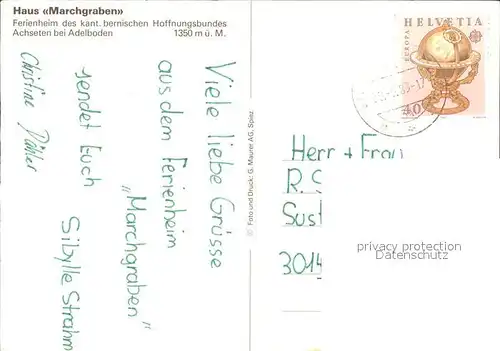 Haus «Marchgraben»
Ferienheim des kant. bernischen Hoffnungsbundes
Achseten bei Adelboden 1350 m ü. M.
Viele liebe Grüsse
aus dem Ferienheim
"Marchgraben"
sendet Euch
Sibylle Strahm
Christine Dähler
Foto und Druck: G. Maurer AG, Spiez
HELVETIA
EUROPA
40
Herr + Frau
R. S
Sust
3014
privacy protection
Datenschutz